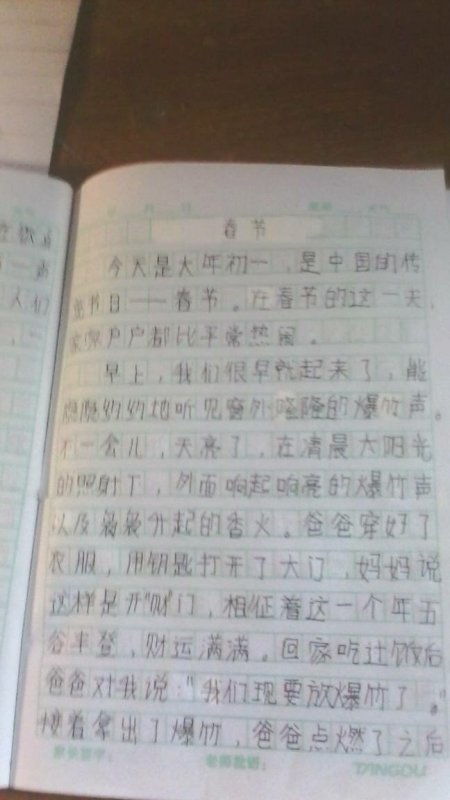 春节
今天是大年初一，是中国的传
统节日——春节。在春节的这一天，
家家户户都比平常热闹。
早上，我们很早就起来了，能
隐隐约约地听见窗外隆隆的爆竹声。
不一会儿，天亮了，在清晨太阳光
的照射下，外面响起响亮的爆竹声
以及袅袅升起的香火。爸爸穿好了
衣服，用钥匙打开了大门，妈妈说
这样是开"财"门，相征着这一个年五
谷丰登，财运满满。回家吃过饭后
爸爸对我说："我们现要放爆竹了。"
接着拿出了爆竹，爸爸点燃了之后
家长签字：
老师批语：
TANGOU
人们